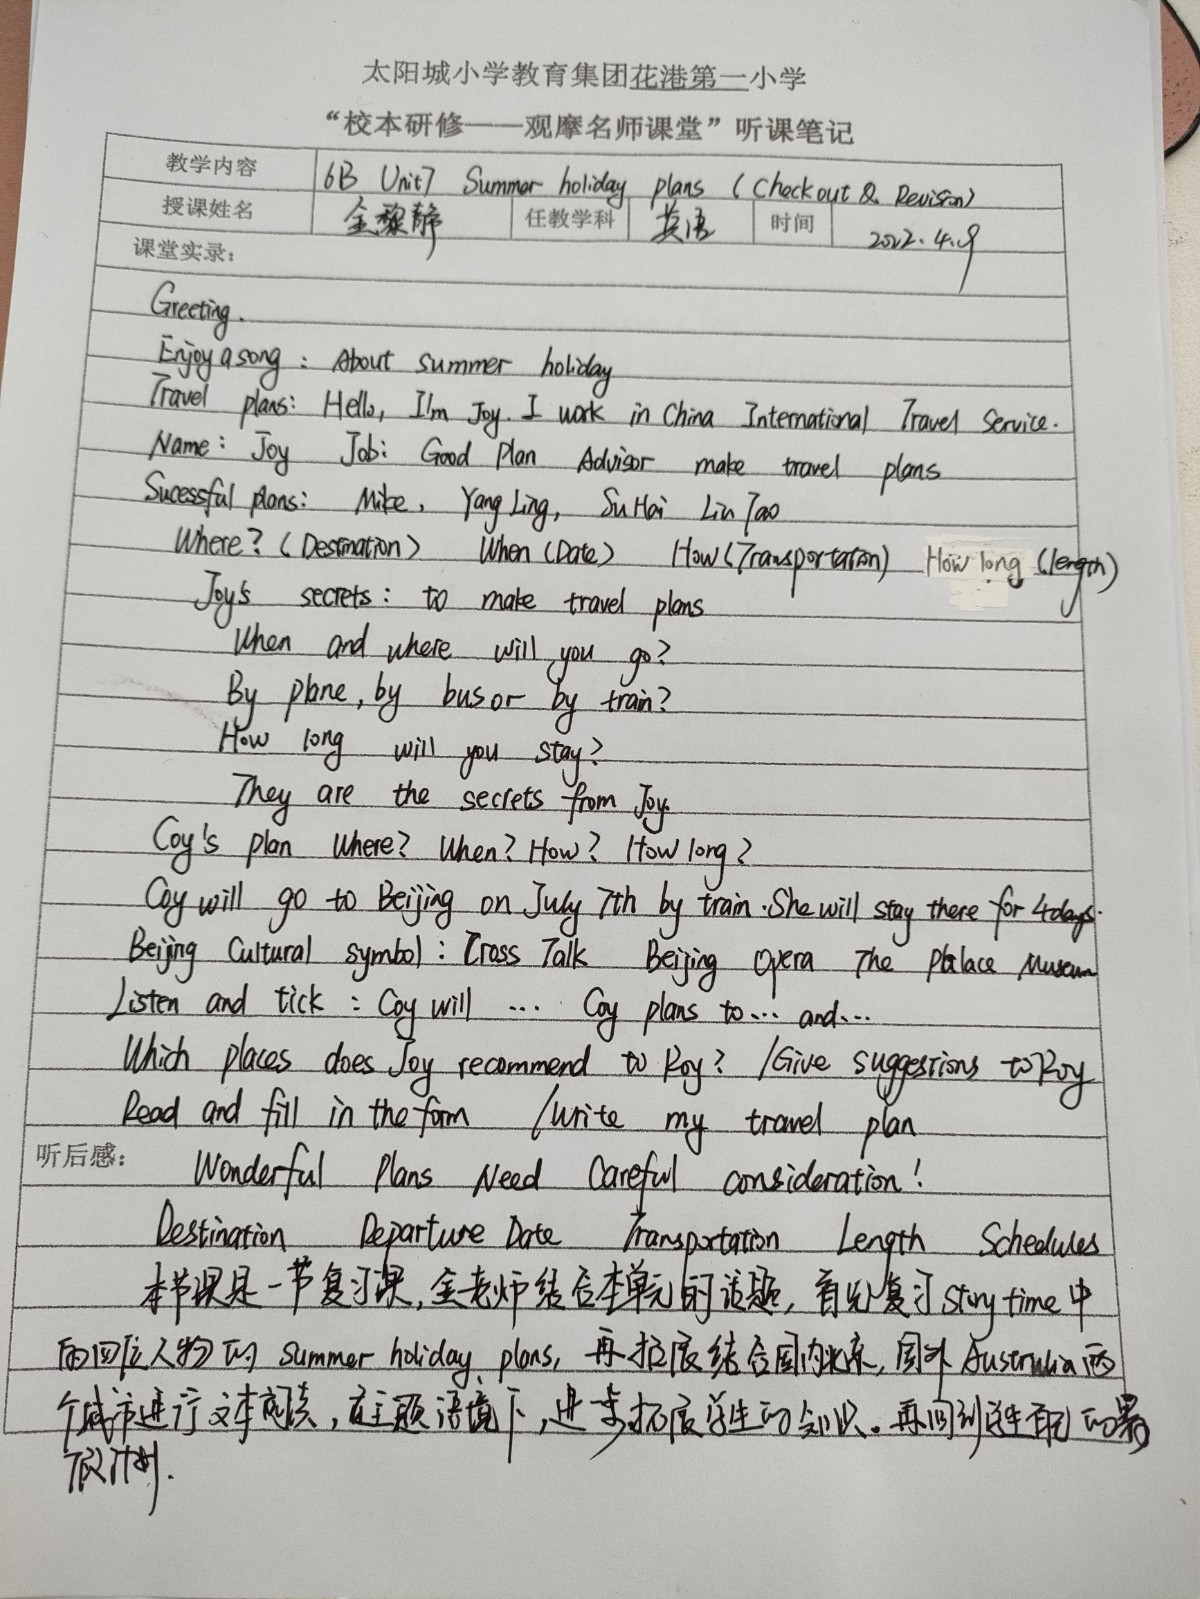 太阳城小学教育集团花港第一小学
“校本研修——观摩名师课堂”听课笔记
教学内容 6B Unit7 Summer holiday plans (Checkout & Revision)
授课姓名 金黎静 任教学科 英语 时间 2022.4.9
课堂实录：
Greeting.
Enjoy a song : About summer holiday
Travel plans: Hello, I'm Joy. I work in China International Travel Service.
Name: Joy Job: Good Plan Advisor make travel plans
Sucessful plans: Mike, Yang Ling, Su Hai Liu Tao
Where? (Destination) When (Date) How (Transportation) How long (length)
Joy's secrets: to make travel plans
When and where will you go?
By plane, by bus or by train?
How long will you stay?
They are the secrets from Joy.
Coy's plan Where? When? How? How long?
Coy will go to Beijing on July 7th by train. She will stay there for 4 days.
Beijing Cultural symbol: Cross Talk Beijing Opera The Palace Museum
Listen and tick : Coy will ... Coy plans to... and...
Which places does Joy recommend to Roy? /Give suggestions to Roy
Read and fill in the form /Write my travel plan
听后感： Wonderful Plans Need Careful consideration!
Destination Departure Date Transportation Length Schedules
本节课是一节复习课,金老师结合本单元的话题,首先复习Story time中
的四位人物的summer holiday plans,再拓展结合国内北京,国外Australia两
个城市进行文本阅读,在主题语境下,进一步拓展学生的知识。再回到学生自己的暑
假计划.